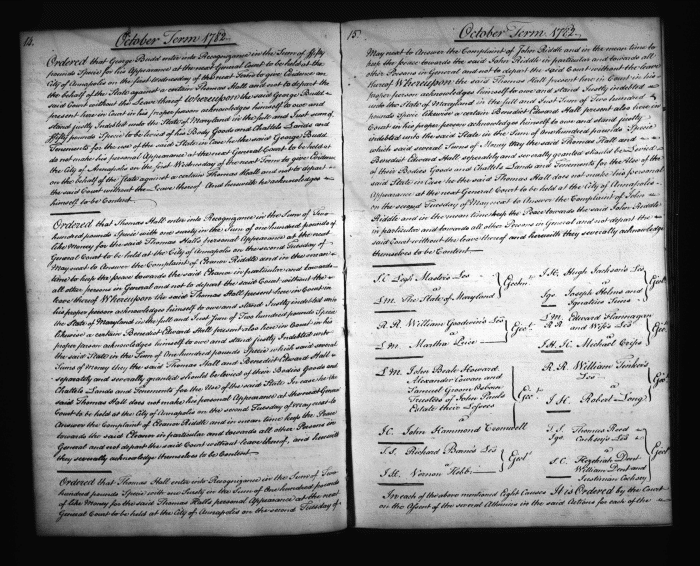 14.
October Term 1782
Ordered that George Budd enter into Recognizance in the Sum of fifty
pounds Specie for his Appearance at the next General Court to be held at the
City of Annapolis on the first Wednesday of the next Term to give Evidence on
the behalf of the State against a certain Thomas Hall and not to depart the
said Court without Leave thereof Whereupon the said George Budd
present here in Court in his proper person acknowledges himself to owe and
stand justly Indebted unto the State of Maryland in the full and Just sum of
fifty pounds Specie to be levied of his Body Goods and Chattels Lands and
Tenements for the use of the said State in Case he the said George Budd
do not make his personal Appearance at the next General Court to be held at
the City of Annapolis on the first Wednesday of the next Term to give Evidence
on the behalf of the State against a certain Thomas Hall and not to depart
the said Court without the Leave thereof And herewith he acknowledges
himself to be Content
Ordered that Thomas Hall enter into Recognizance in the Sum of Two
hundred pounds Specie with one surety in the Sum of one hundred pounds of
like Money for the said Thomas Halls personal Appearance at the next
General Court to be held at the City of Annapolis on the second Tuesday of
May next to Answer the Complaint of Eleanor Riddle and in the mean
time to keep the peace towards the said Eleanor in particular and towards
all other persons in General and not to depart the said Court without the
leave thereof Whereupon the said Thomas Hall present here in Court in
his proper person acknowledges himself to owe and stand Justly indebted unto
the State of Maryland in the full and Just Sum of Two hundred pounds Specie
likewise a certain Benedict Edward Hall present also here in Court in his
proper person acknowledges himself to owe and stand justly Indebted unto
the said State in the Sum of One hundred pounds Specie which said several
Sums of Money they the said Thomas Hall and Benedict Edward Hall
separately and severally granted should be levied of their Bodies Goods and
Chattels Lands and Tenements for the Use of the said State In case he the
said Thomas Hall does not make his personal Appearance at the next General
Court to be held at the City of Annapolis on the second Tuesday of May next to
Answer the Complaint of Eleanor Riddle and in mean time keep the Peace
towards the said Eleanor in particular and towards all other Persons in
General and not depart the said Court without leave thereof, and herewith
they severally acknowledge themselves to be Content
Ordered that Thomas Hall enter into Recognizance in the Sum of Two
hundred pounds Specie with one Surety in the Sum of One hundred pounds
of like Money for the said Thomas Halls personal Appearance at the next
General Court to be held at the City of Annapolis on the second Tuesday of
15.
October Term 1782
May next to Answer the Complaint of John Riddle and in the mean time to
keep the peace towards the said John Riddle in particular and towards all
other Persons in General and not to depart the said Court without the leave
thereof Whereupon the said Thomas Hall present here in Court in his
proper Person acknowledges himself to owe and stand Justly indebted unto
the State of Maryland in the full and Just Sum of Two hundred
pounds Specie likewise a certain Benedict Edward Hall present also here in
Court in his proper person acknowledges himself to owe and stand justly
indebted unto the said State in the Sum of One hundred pounds Specie
which said several Sums of Money they the said Thomas Hall and
Benedict Edward Hall separately and severally granted should be Levied
of their Bodies Goods and Chattels Lands and Tenements for the Use of the
said State in Case he the said Thomas Hall does not make his personal
Appearance at the next General Court to be held at the City of Annapolis
on the second Tuesday of May next to Answer the Complaint of John
Riddle and in the mean time keep the Peace towards the said John Riddle
in particular and towards all other Persons in General and not depart the
said Court without the leave thereof and herewith they severally acknowledge
themselves to be Content
J.C. Legh Master's Les
a
L.M. The State of Maryland
Eject.t
R.R. William Goodwin's Les
a
L.M. Martha Price
Eject.t
L.M. John Beale Howard
Alexander Cowan and
Samuel Groom Osborn
Trustees of John Pauls
Estate their Lessees
a
J.C. John Hammond Cromwell
Eject.t
J.T. Richard Bain's Les
a
J.H. Vernon Hebb
Eject.t
J.H. Hugh Jackson's Les
a
Jgo. Joseph Holmes and
Ignatius Sims
Eject.t
L.M. Edward Flannagan
R.R. and Wife's Les
a
J.H. J.C. Michael Crips
Eject.t
R.R. William Tucker's
Les
a
J.H. Robert Long
Eject.t
J.T. Thomas Reed
Jgo. Cockesey's Les
a
J.C. Hezekiah Dent
William Dent and
Justinian Cocksey
Eject
In each of the above mentioned Eight Causes It is Ordered by the Court
on the Assent of the several Attornies in the said Actions for each of the